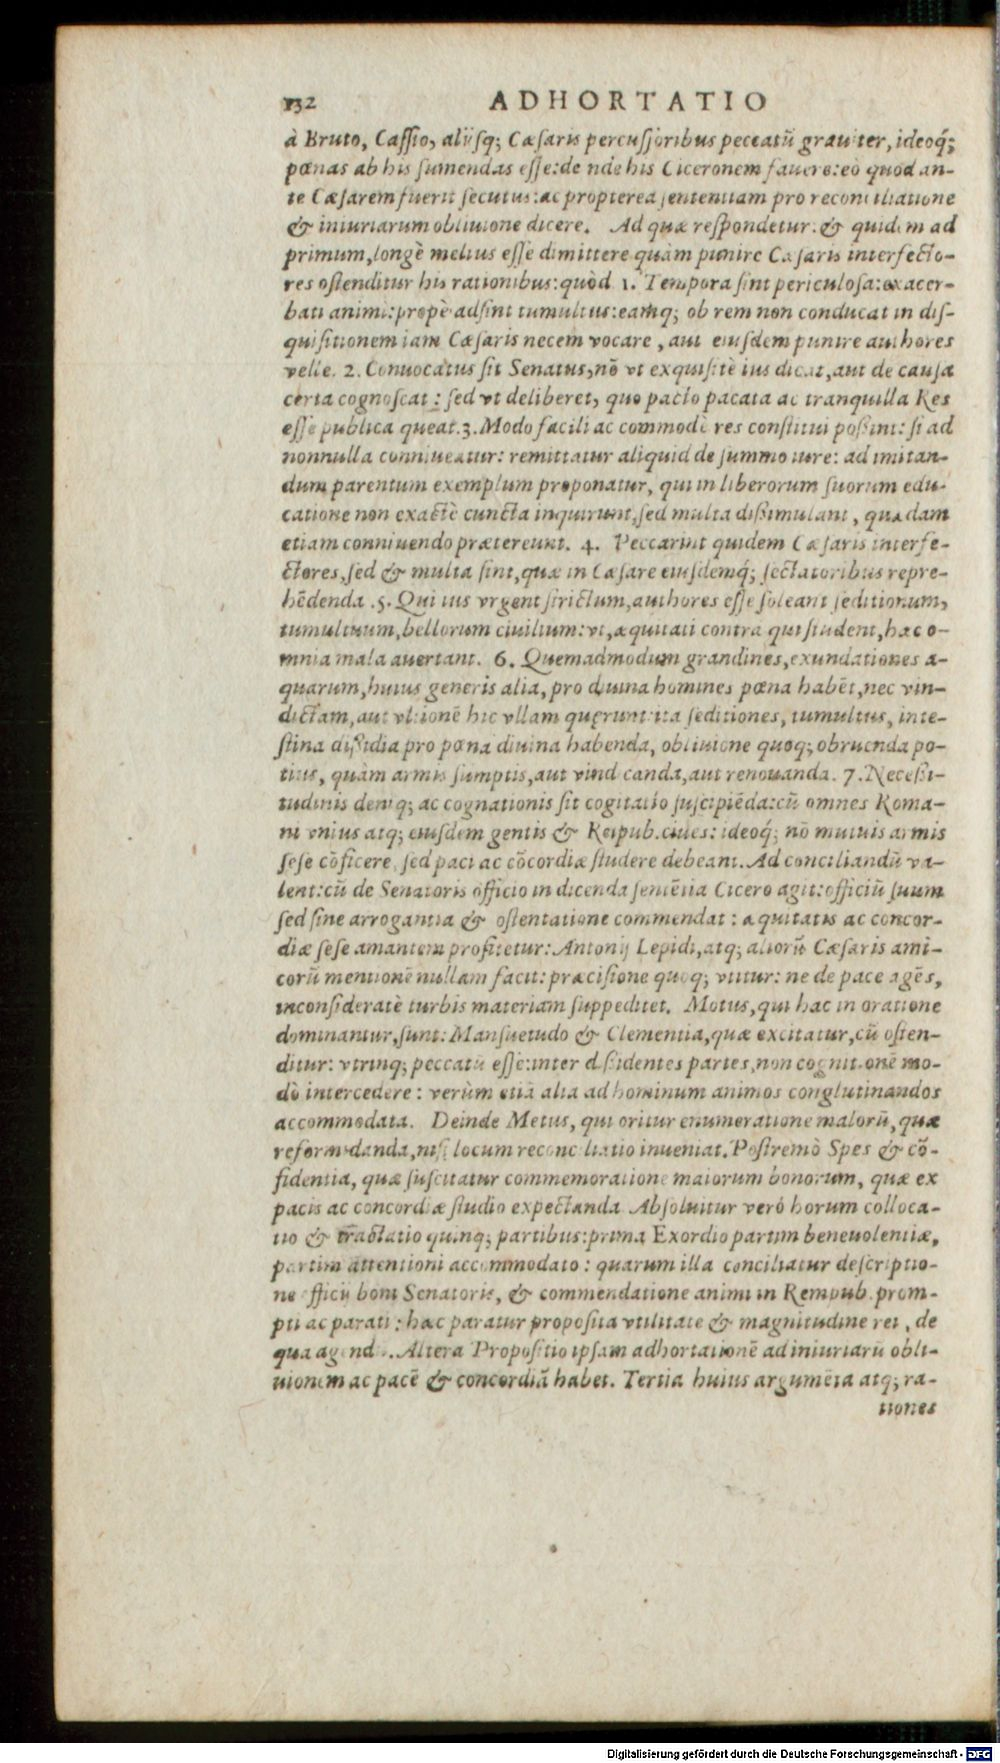 132 ADHORTATIO
à Bruto, Cassio, aliisq; Cæsaris percussoribus peccatũ grauiter, ideoq́;
pœnas ab his sumendas esse: deinde his Ciceronem fauere: eò quòd an-
te Cæsarem fuerit secutus: ac propterea sententiam pro reconciliatione
& iniuriarum obliuione dicere. Ad quæ respondetur. & quidem ad
primum, longè melius esse dimittere quàm punire Cæsaris interfecto-
res ostenditur his rationibus: quòd 1. Tempora sint periculosa: exacer-
bati animi: propè adsint tumultus: eamq; ob rem non conducat in dis-
quisitionem iam Cæsaris necem vocare, aut eiusdem punire authores
velle. 2. Conuocatus sit Senatus, nõ vt exquisitè ius dicat, aut de causa
certa cognoscat: sed vt deliberet, quo pacto pacata ac tranquilla Res
esse publica queat. 3. Modo facili ac commodè res constitui possint: si ad
nonnulla conniueatur: remittatur aliquid de summo iure: ad imitan-
dum parentum exemplum proponatur, qui in liberorum suorum edu-
catione non exactè cuncta inquirunt, sed multa dissimulant, quædam
etiam conniuendo prætereunt. 4. Peccarint quidem Cæsaris interfe-
ctores, sed & multa sint, quæ in Cæsare eiusdemq́; sectatoribus repre-
hẽdenda. 5. Qui ius vrgent strictum, authores esse soleant seditionum,
tumultuum, bellorum ciuilium: vt, æquitati contra qui student, hæc o-
mnia mala auertant. 6. Quemadmodum grandines, exundationes a-
quarum, huius generis alia, pro diuina homines pœna habẽt, nec vin-
dictam, aut vltionẽ hic vllam quęrunt: ita seditiones, tumultus, inte-
stina dissidia pro pœna diuina habenda, obliuione quoq; obruenda po-
tius, quàm armis sumptis, aut vindicanda, aut renouanda. 7. Necessi-
tudinis deniq; ac cognationis sit cogitatio suscipiẽda: cũ omnes Roma-
ni vnius atq; eiusdem gentis & Reipub. ciues: ideoq́; nõ mutuis armis
sese cõficere, sed paci ac cõcordiæ studere debeant. Ad conciliandũ va-
lent: cũ de Senatoris officio in dicenda sentẽtia Cicero agit: officiũ suum
sed sine arrogantia & ostentatione commendat: æquitatis ac concor-
diæ sese amantem profitetur: Antonij Lepidi, atq; aliorũ Cæsaris ami-
corũ mentionẽ nullam facit: præcisione quoq; vtitur: ne de pace agẽs,
inconsideratè turbis materiam suppeditet. Motus, qui hac in oratione
dominantur, sunt: Mansuetudo & Clementia, quæ excitatur, cũ osten-
ditur: vtrinq; peccatũ esse: inter dissidentes partes, non cognitionẽ mo-
dò intercedere: verùm etiã alia ad hominum animos conglutinandos
accommodata. Deinde Metus, qui oritur enumeratione malorũ, quæ
reformidanda, nisi locum reconciliatio inueniat. Postremò Spes & cõ-
fidentia, quæ suscitatur commemoratione maiorum bonorum, quæ ex
pacis ac concordiæ studio expectanda. Absoluitur verò horum colloca-
tio & tractatio quinq; partibus: prima Exordio partim beneuolentiæ,
partim attentioni accommodato: quarum illa conciliatur descriptio-
ne officii boni Senatoris, & commendatione animi in Rempub. prom-
pti ac parati: hæc paratur proposita vtilitate & magnitudine rei, de
qua agendũ. Altera Propositio ipsam adhortationẽ ad iniuriarũ obli-
uionem ac pacẽ & concordiã habet. Tertia huius argumẽta atq; ra-
tiones
Digitalisierung gefördert durch die Deutsche Forschungsgemeinschaft - DFG